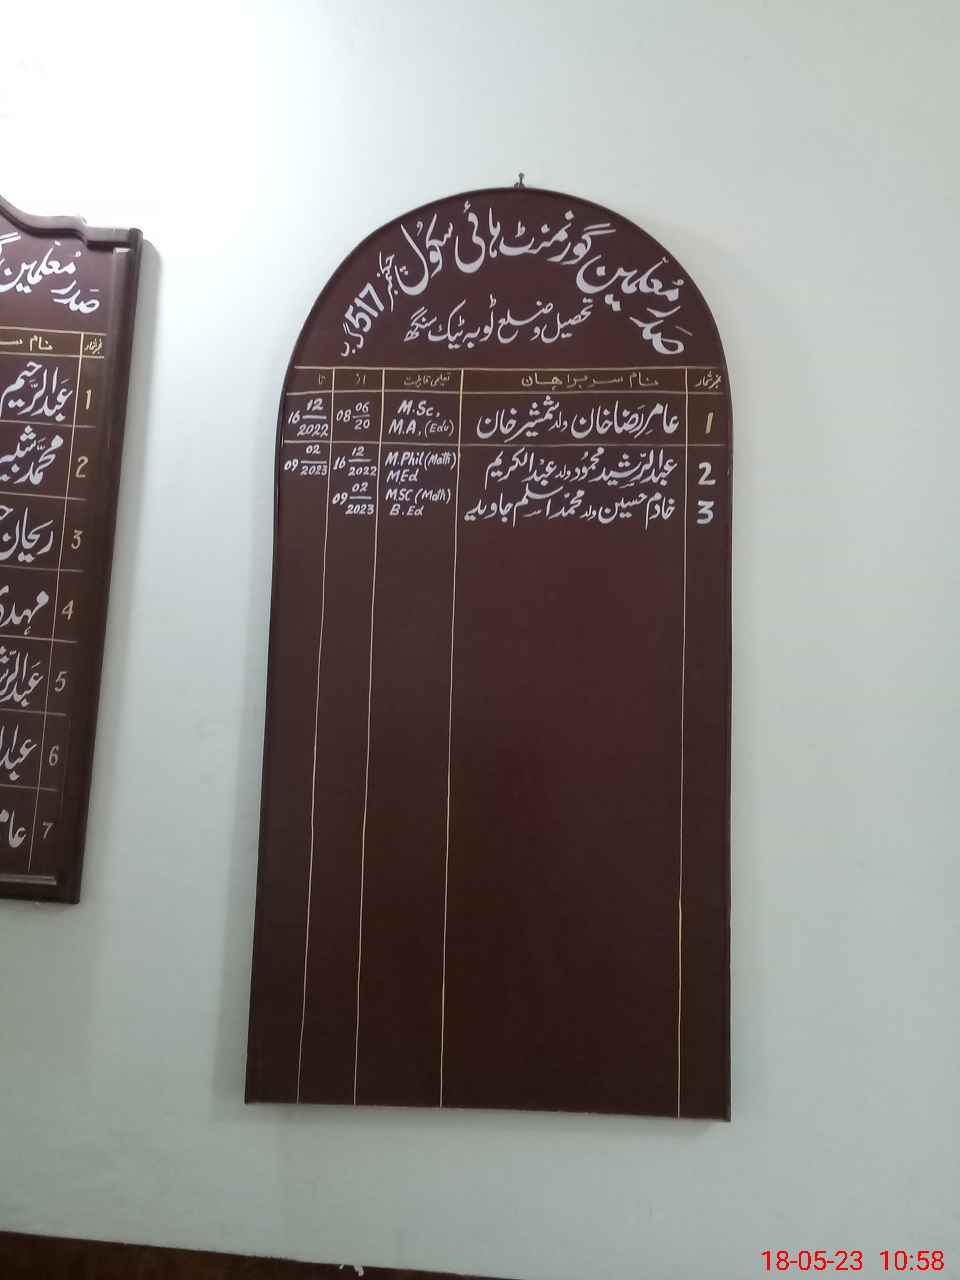 صدر معلمین گورنمنٹ ہائی سکول چک نمبر 517 گ ب
تحصیل و ضلع ٹوبہ ٹیک سنگھ
نمبر شمار نام سربراہان تعلیمی قابلیت از تا
1 عامر رضا خان ولد شمشیر خان M.Sc, M.A, (Edu) 08 06 20 16 12 2022
2 عبدالرشید محمود ولد عبدالکریم M.Phil (Math) MEd 16 12 2022 09 02 2023
3 خادم حسین ولد محمد اسلم جاوید MSC (Math) B.Ed 09 02 2023
صدر معلمین
نمبر شمار نام
1 عبدالرحیم
2 محمد شبیر
3 ریحان
4 مہدی
5
6
7
18-05-23 10:58